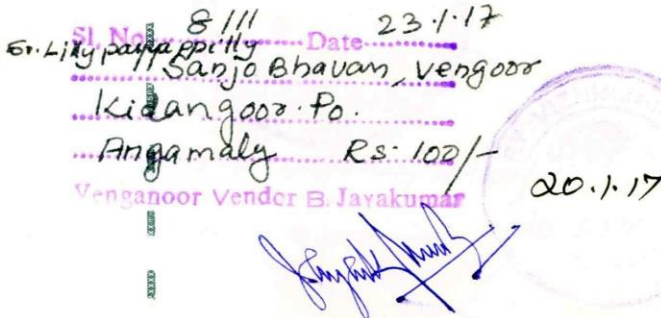 Sl. No. 8111 Date 23.1.17
Sr. Lilly payyappilly
Sanjo Bhavan, Vengoor
Kidangoor. Po.
Angamaly Rs. 100/-
Venganoor Vender B. Jayakumar
20.1.17